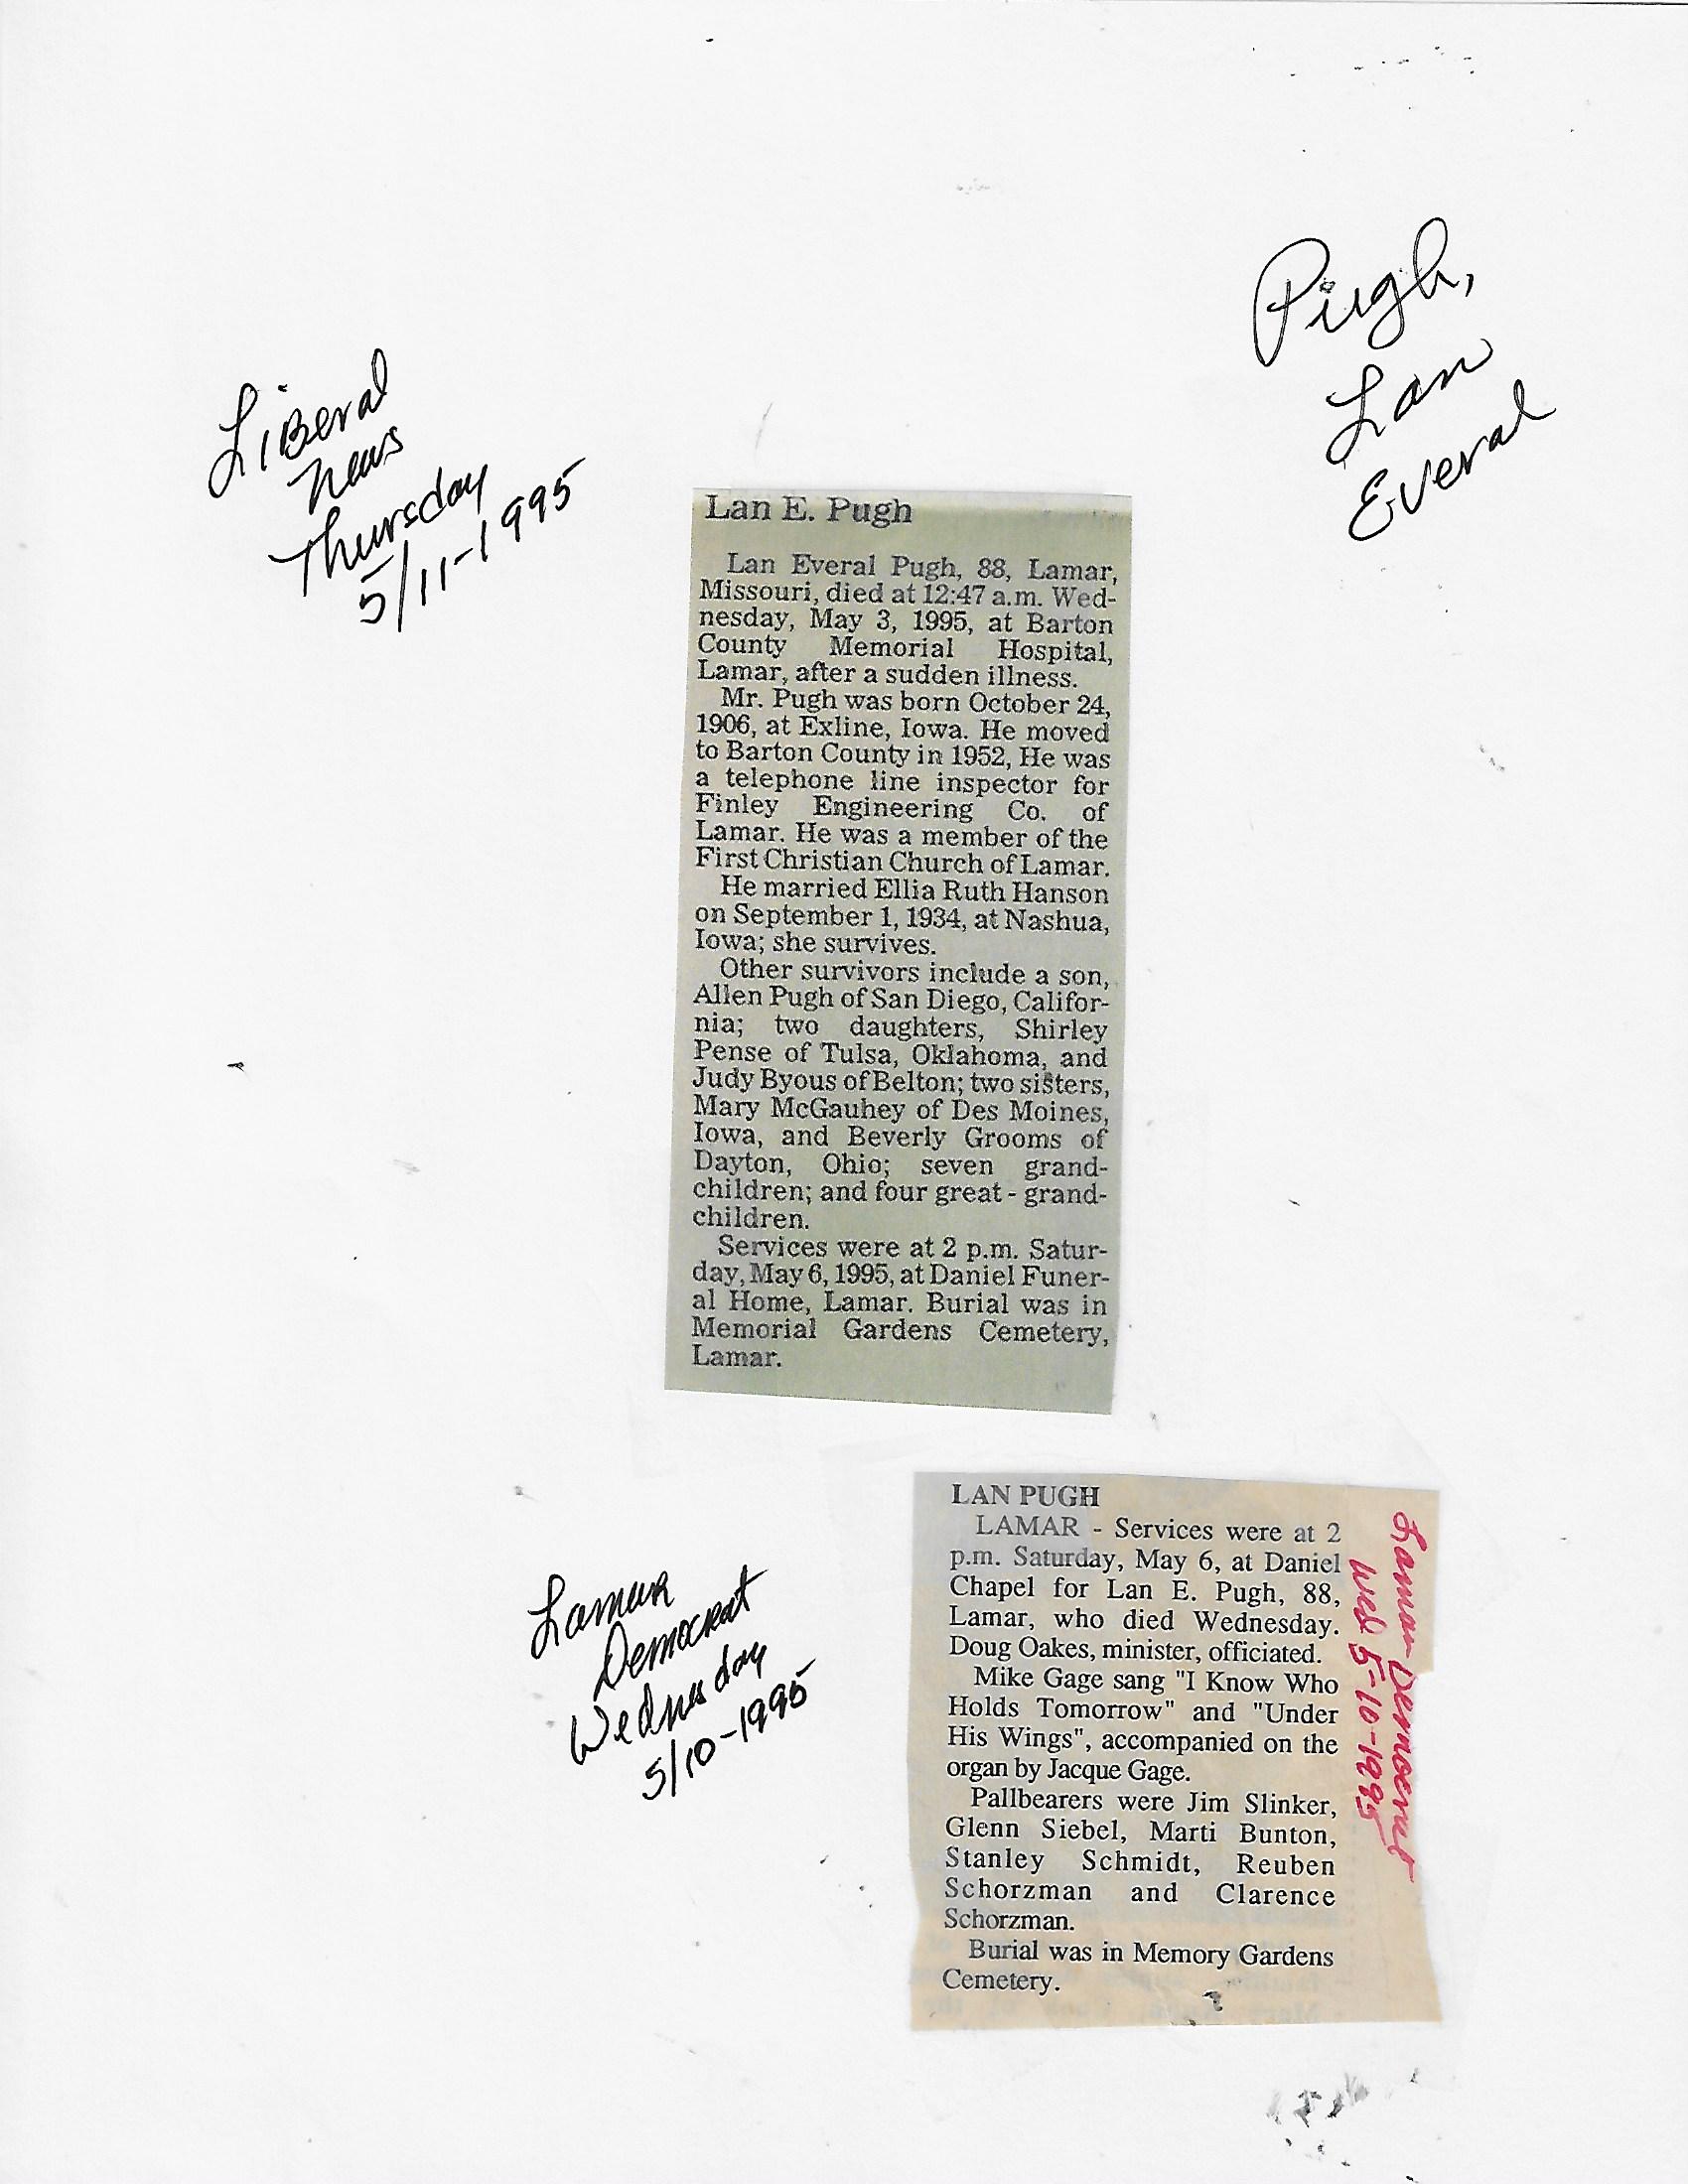 Pugh,
Lan
Everal
Liberal
News
Thursday
5/11-1995
Lan E. Pugh
Lan Everal Pugh, 88, Lamar,
Missouri, died at 12:47 a.m. Wed-
nesday, May 3, 1995, at Barton
County Memorial Hospital,
Lamar, after a sudden illness.
Mr. Pugh was born October 24,
1906, at Exline, Iowa. He moved
to Barton County in 1952, He was
a telephone line inspector for
Finley Engineering Co. of
Lamar. He was a member of the
First Christian Church of Lamar.
He married Ellia Ruth Hanson
on September 1, 1934, at Nashua,
Iowa; she survives.
Other survivors include a son,
Allen Pugh of San Diego, Califor-
nia; two daughters, Shirley
Pense of Tulsa, Oklahoma, and
Judy Byous of Belton; two sisters,
Mary McGauhey of Des Moines,
Iowa, and Beverly Grooms of
Dayton, Ohio; seven grand-
children; and four great - grand-
children.
Services were at 2 p.m. Satur-
day, May 6, 1995, at Daniel Funer-
al Home, Lamar. Burial was in
Memorial Gardens Cemetery,
Lamar.
Lamar
Democrat
Wednesday
5/10-1995
LAN PUGH
LAMAR - Services were at 2
p.m. Saturday, May 6, at Daniel
Chapel for Lan E. Pugh, 88,
Lamar, who died Wednesday.
Doug Oakes, minister, officiated.
Mike Gage sang "I Know Who
Holds Tomorrow" and "Under
His Wings", accompanied on the
organ by Jacque Gage.
Pallbearers were Jim Slinker,
Glenn Siebel, Marti Bunton,
Stanley Schmidt, Reuben
Schorzman and Clarence
Schorzman.
Burial was in Memory Gardens
Cemetery.
Lamar Democrat
Wed 5-10-1995